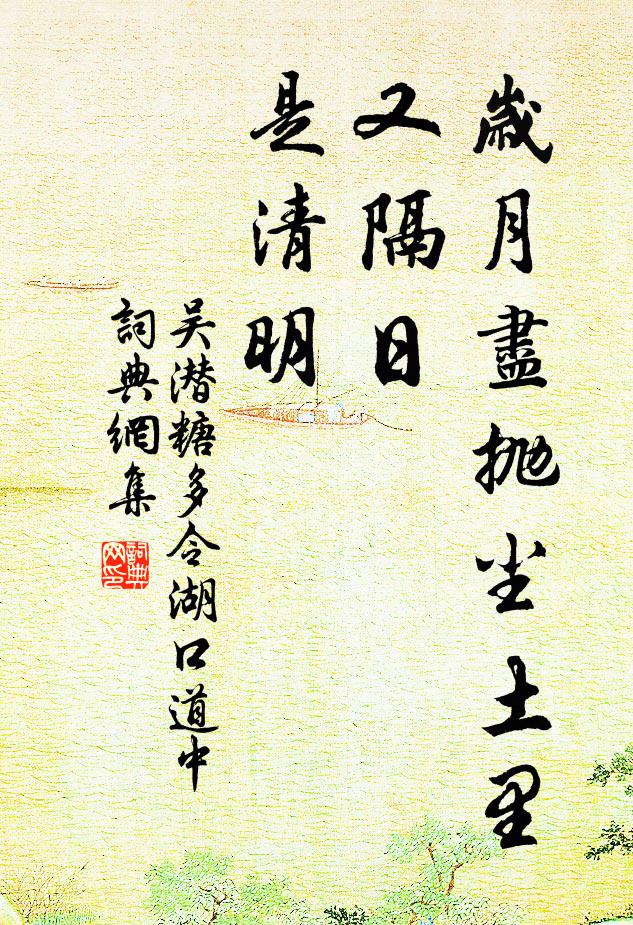 歲月盡抛尘土里
又隔日
是清明
吴潜糖多令湖口道中
詞典網集
詞典网印